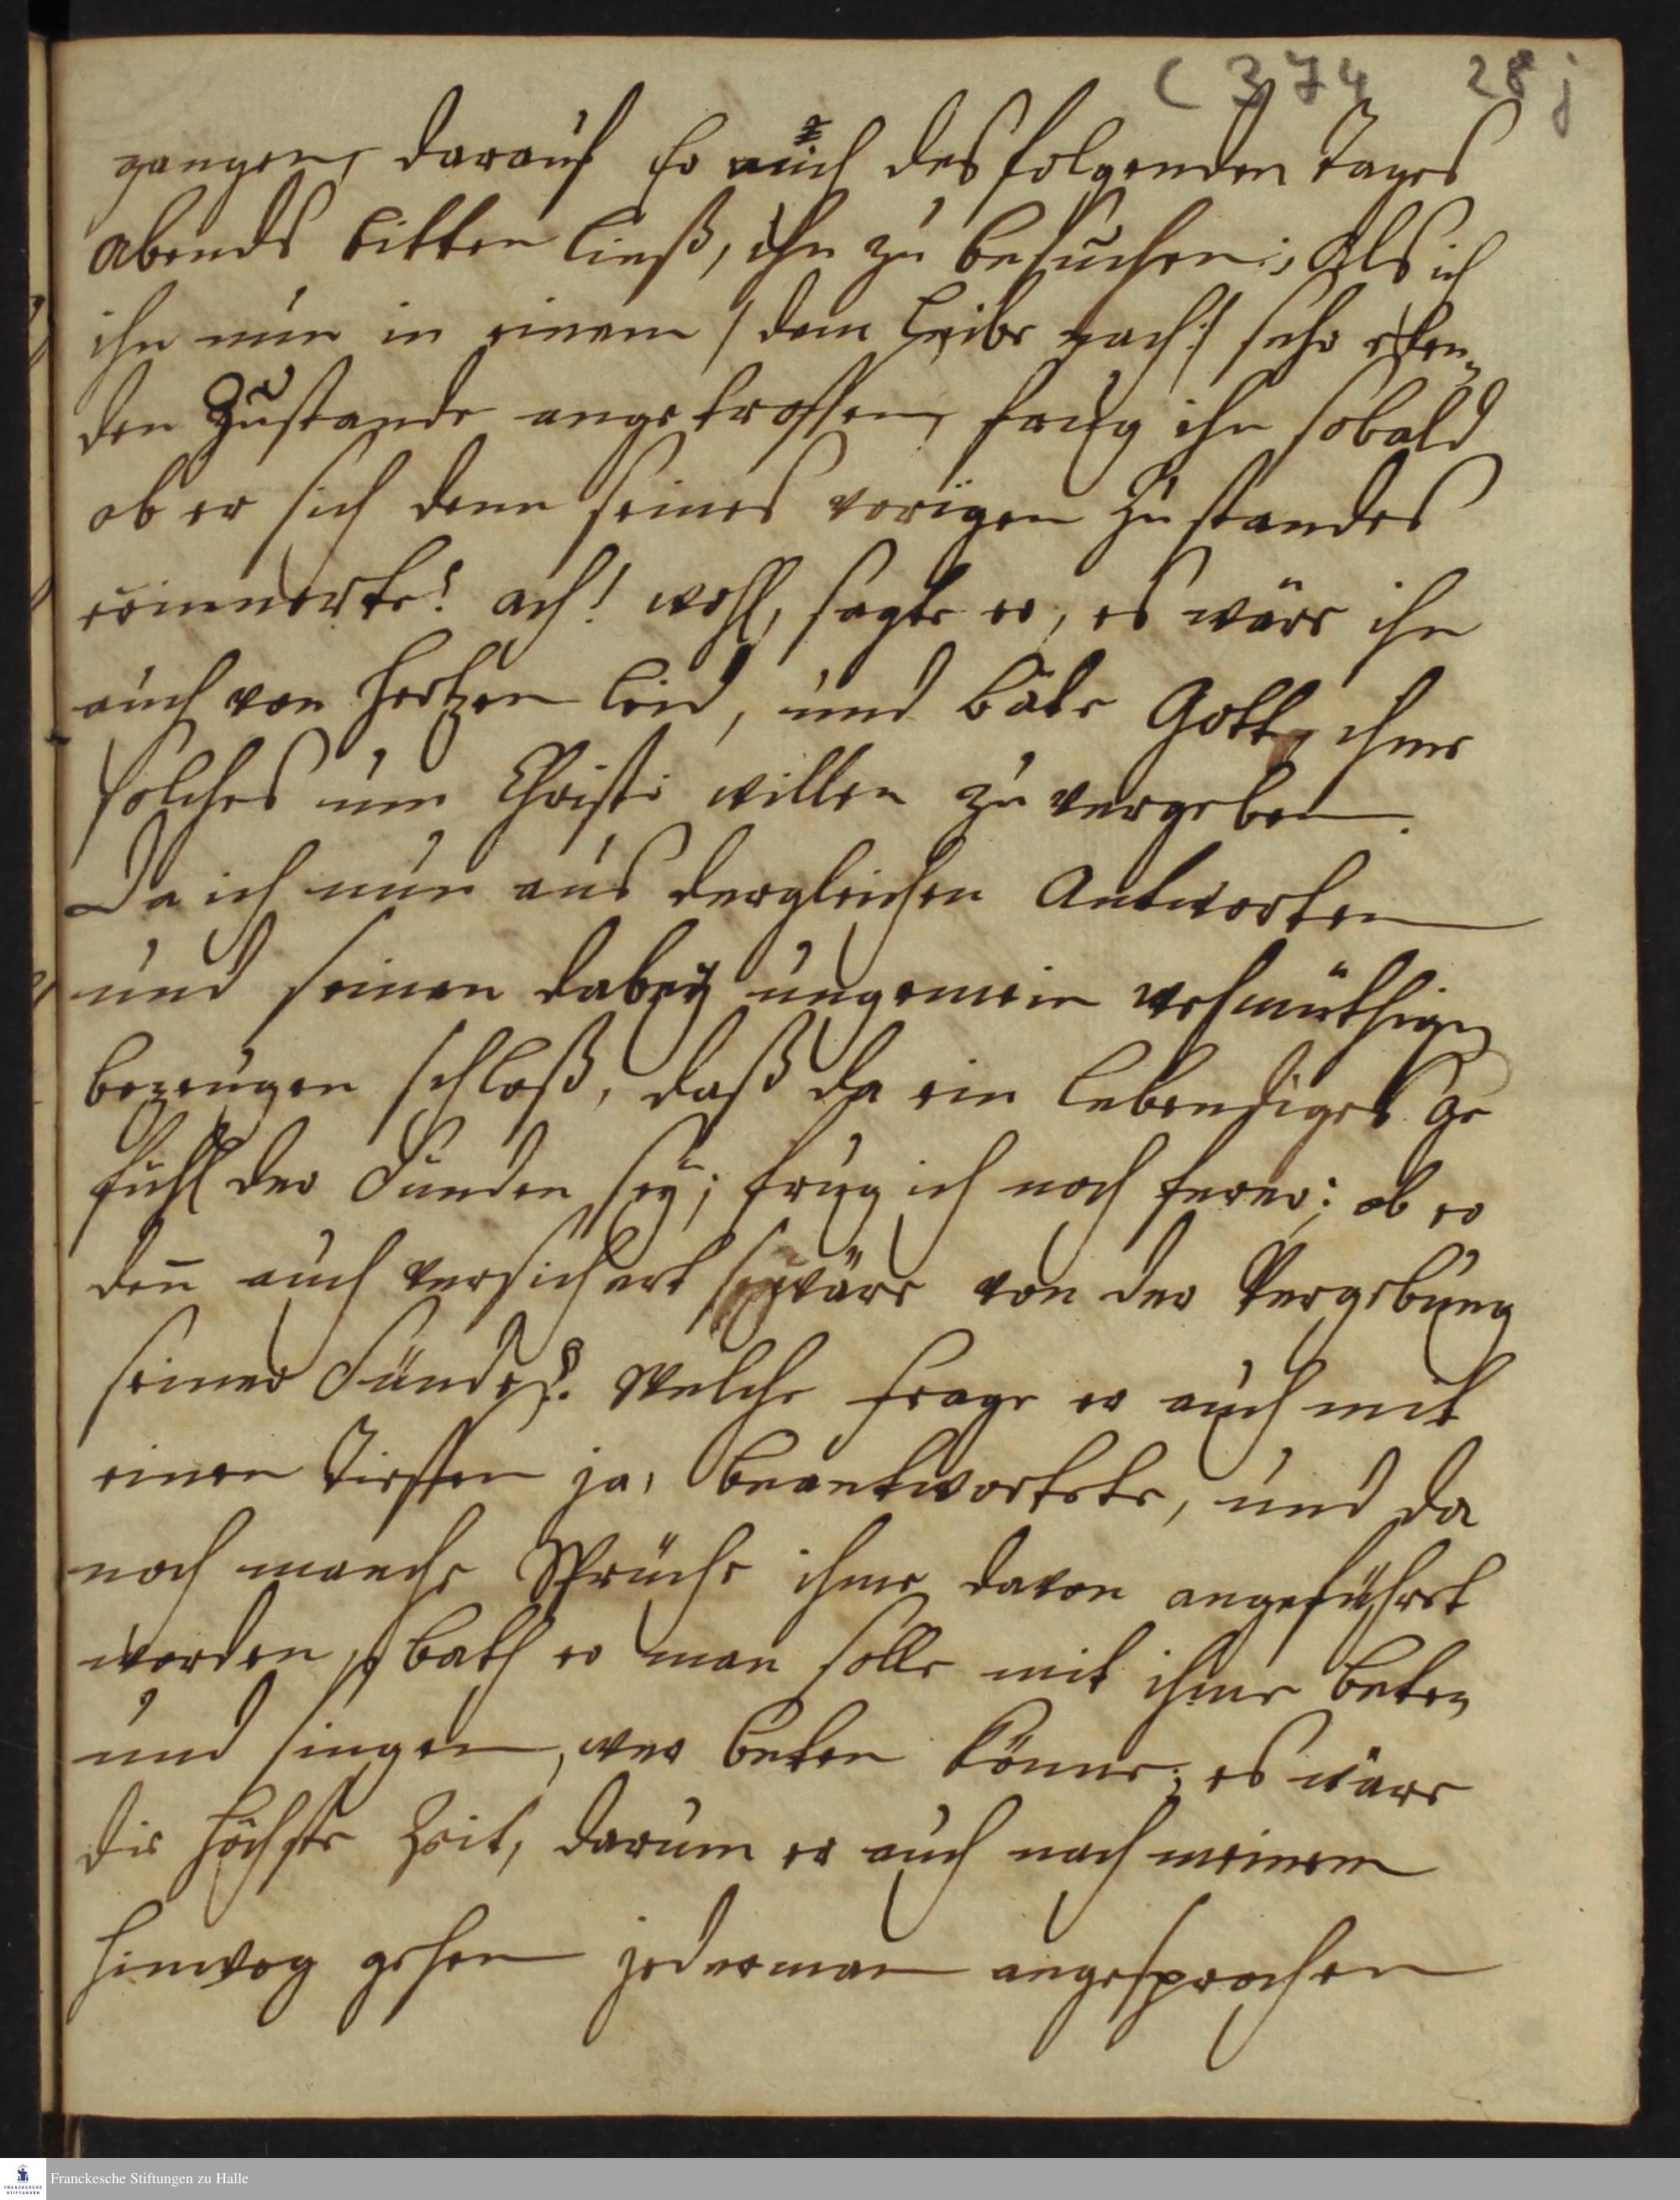 C 374 28 j
gangen, darauf Er mich des folgenden Tages
Abends bitten ließ, ihn zu besuchen; Als ich
ihn nun in einem /: dem Leibe nach :/ sehr
den Zustande angetroffen, frug ihn sobald
ob er sich denn seines vorigen Zustandes
erinnerte? ach! wohl, sagte er, es wäre ihn
auch von Hertzen leid, und bäte Gott, ihme
solches um Christi willen zu vergeben.
Da ich nun aus dergleichen Antworten
und seinen dabey ungemein wehmüthigen
bezeugen schloß, daß da ein lebendiges Ge
fühl der Sünden sey; frug ich noch ferner: ob er
deñ auch versichert wäre von der Vergebung
seiner Sünde? Welche Frage er auch mit
einen Tieffen ja, beantwortete, und da
noch manche Sprüche ihme davon angeführet
worden, bath er man solle mit ihme beten
und singen, wer beten könne; es wäre
die höchste Zeit, darum er auch nach meinem
hinweg gehen jederman angesprochen
Franckesche Stiftungen zu Halle
FRANCKESCHE
STIFTUNGEN